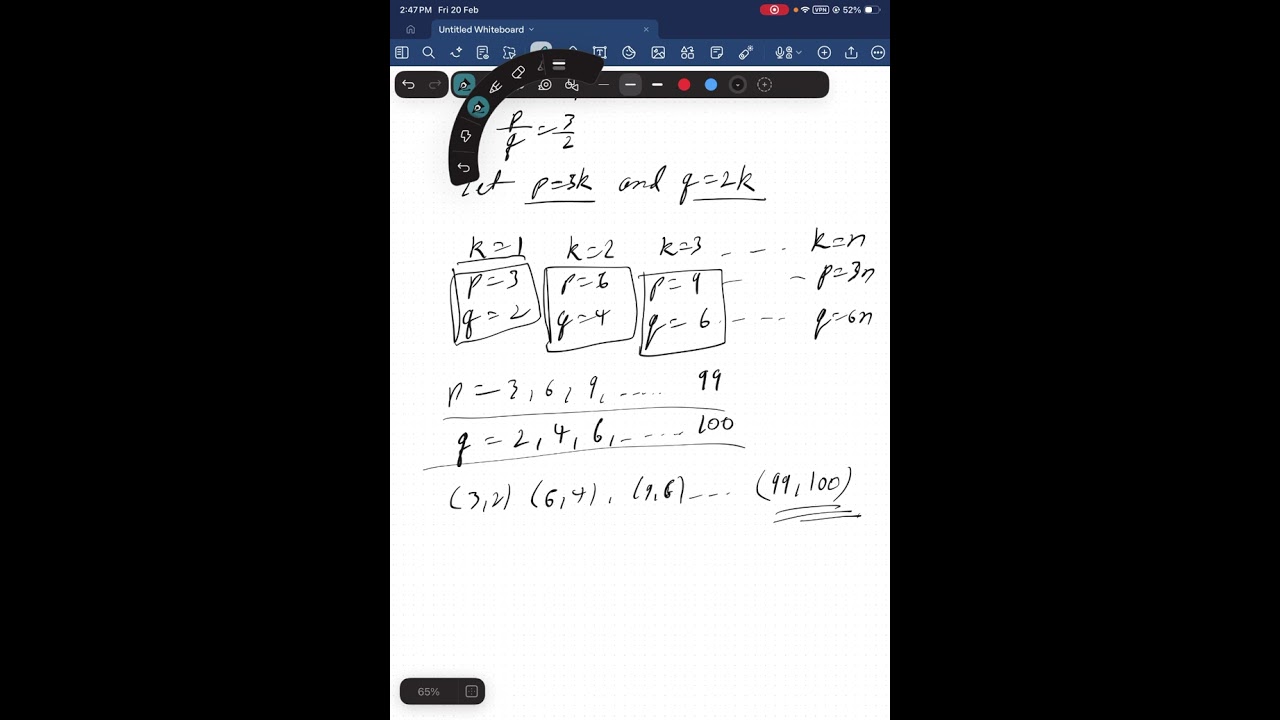 2:47 PM Fri 20 Feb
VPN 52%
Untitled Whiteboard
p/q = 3/2
Let p=3k and q=2k
k=1 k=2 k=3 - - - k=n
p=3 p=6 p=9 - - p=3n
q=2 q=4 q=6 - - - - q=6n
p=3, 6, 9, ...... 99
q=2, 4, 6, ...... 100
(3,2) (6,4), (9,6) .... (99,100)
65%